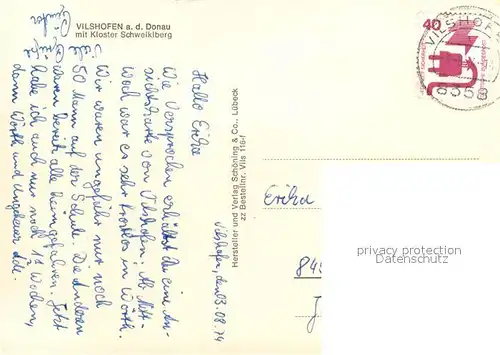 VILSHOFEN a. d. Donau
mit Kloster Schweiklberg
Vilshofen, den 3.08.74
Hallo Erika
Wie versprochen erhältst du eine An-
sichtskarte von Vilshofen. Am Mitt-
woch war es sehr trocken in Wörth.
Wir waren ungefähr nur noch
50 Mann auf der Schule. Die Anderen
waren bereits alle heimgefahren. Jetzt
habe ich auch nur noch 1 1/2 Wochen,
dann Wörth und
Hersteller und Verlag Schöning & Co., Lübeck
zz Bestellnr. Vils 116-f
40
VILSHOFEN
8358
Erika
845
privacy protection